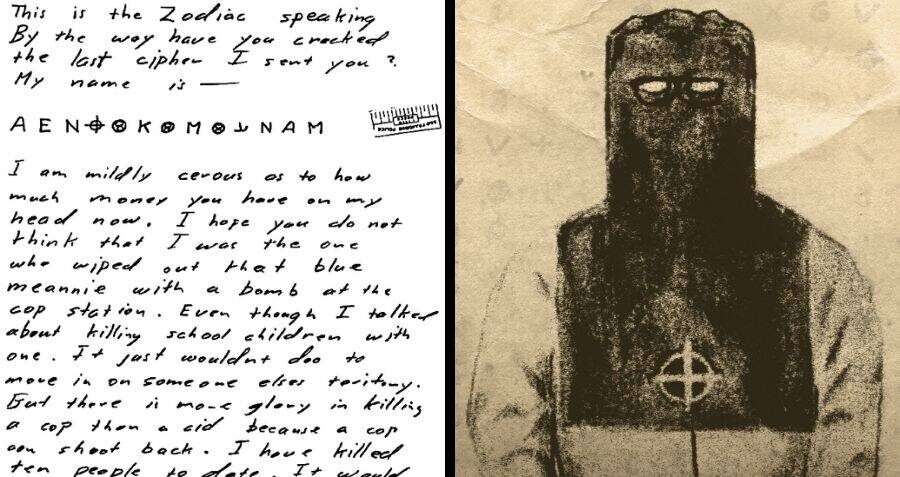 This is the Zodiac speaking
By the way have you cracked
the last cipher I sent you ?
My name is —
A E N ⌖ ⊗ K ⊗ M ⊗ ⅄ N A M
SAN FRANCISCO POLICE
I am mildly cerous as to how
much money you have on my
head now. I hope you do not
think that I was the one
who wiped out that blue
meannie with a bomb at the
cop station. Even though I talked
about killing school children with
one. It just wouldnt doo to
move in on someone elses teritory.
But there is more glory in killing
a cop than a cid because a cop
can shoot back. I have killed
ten people to date. It would